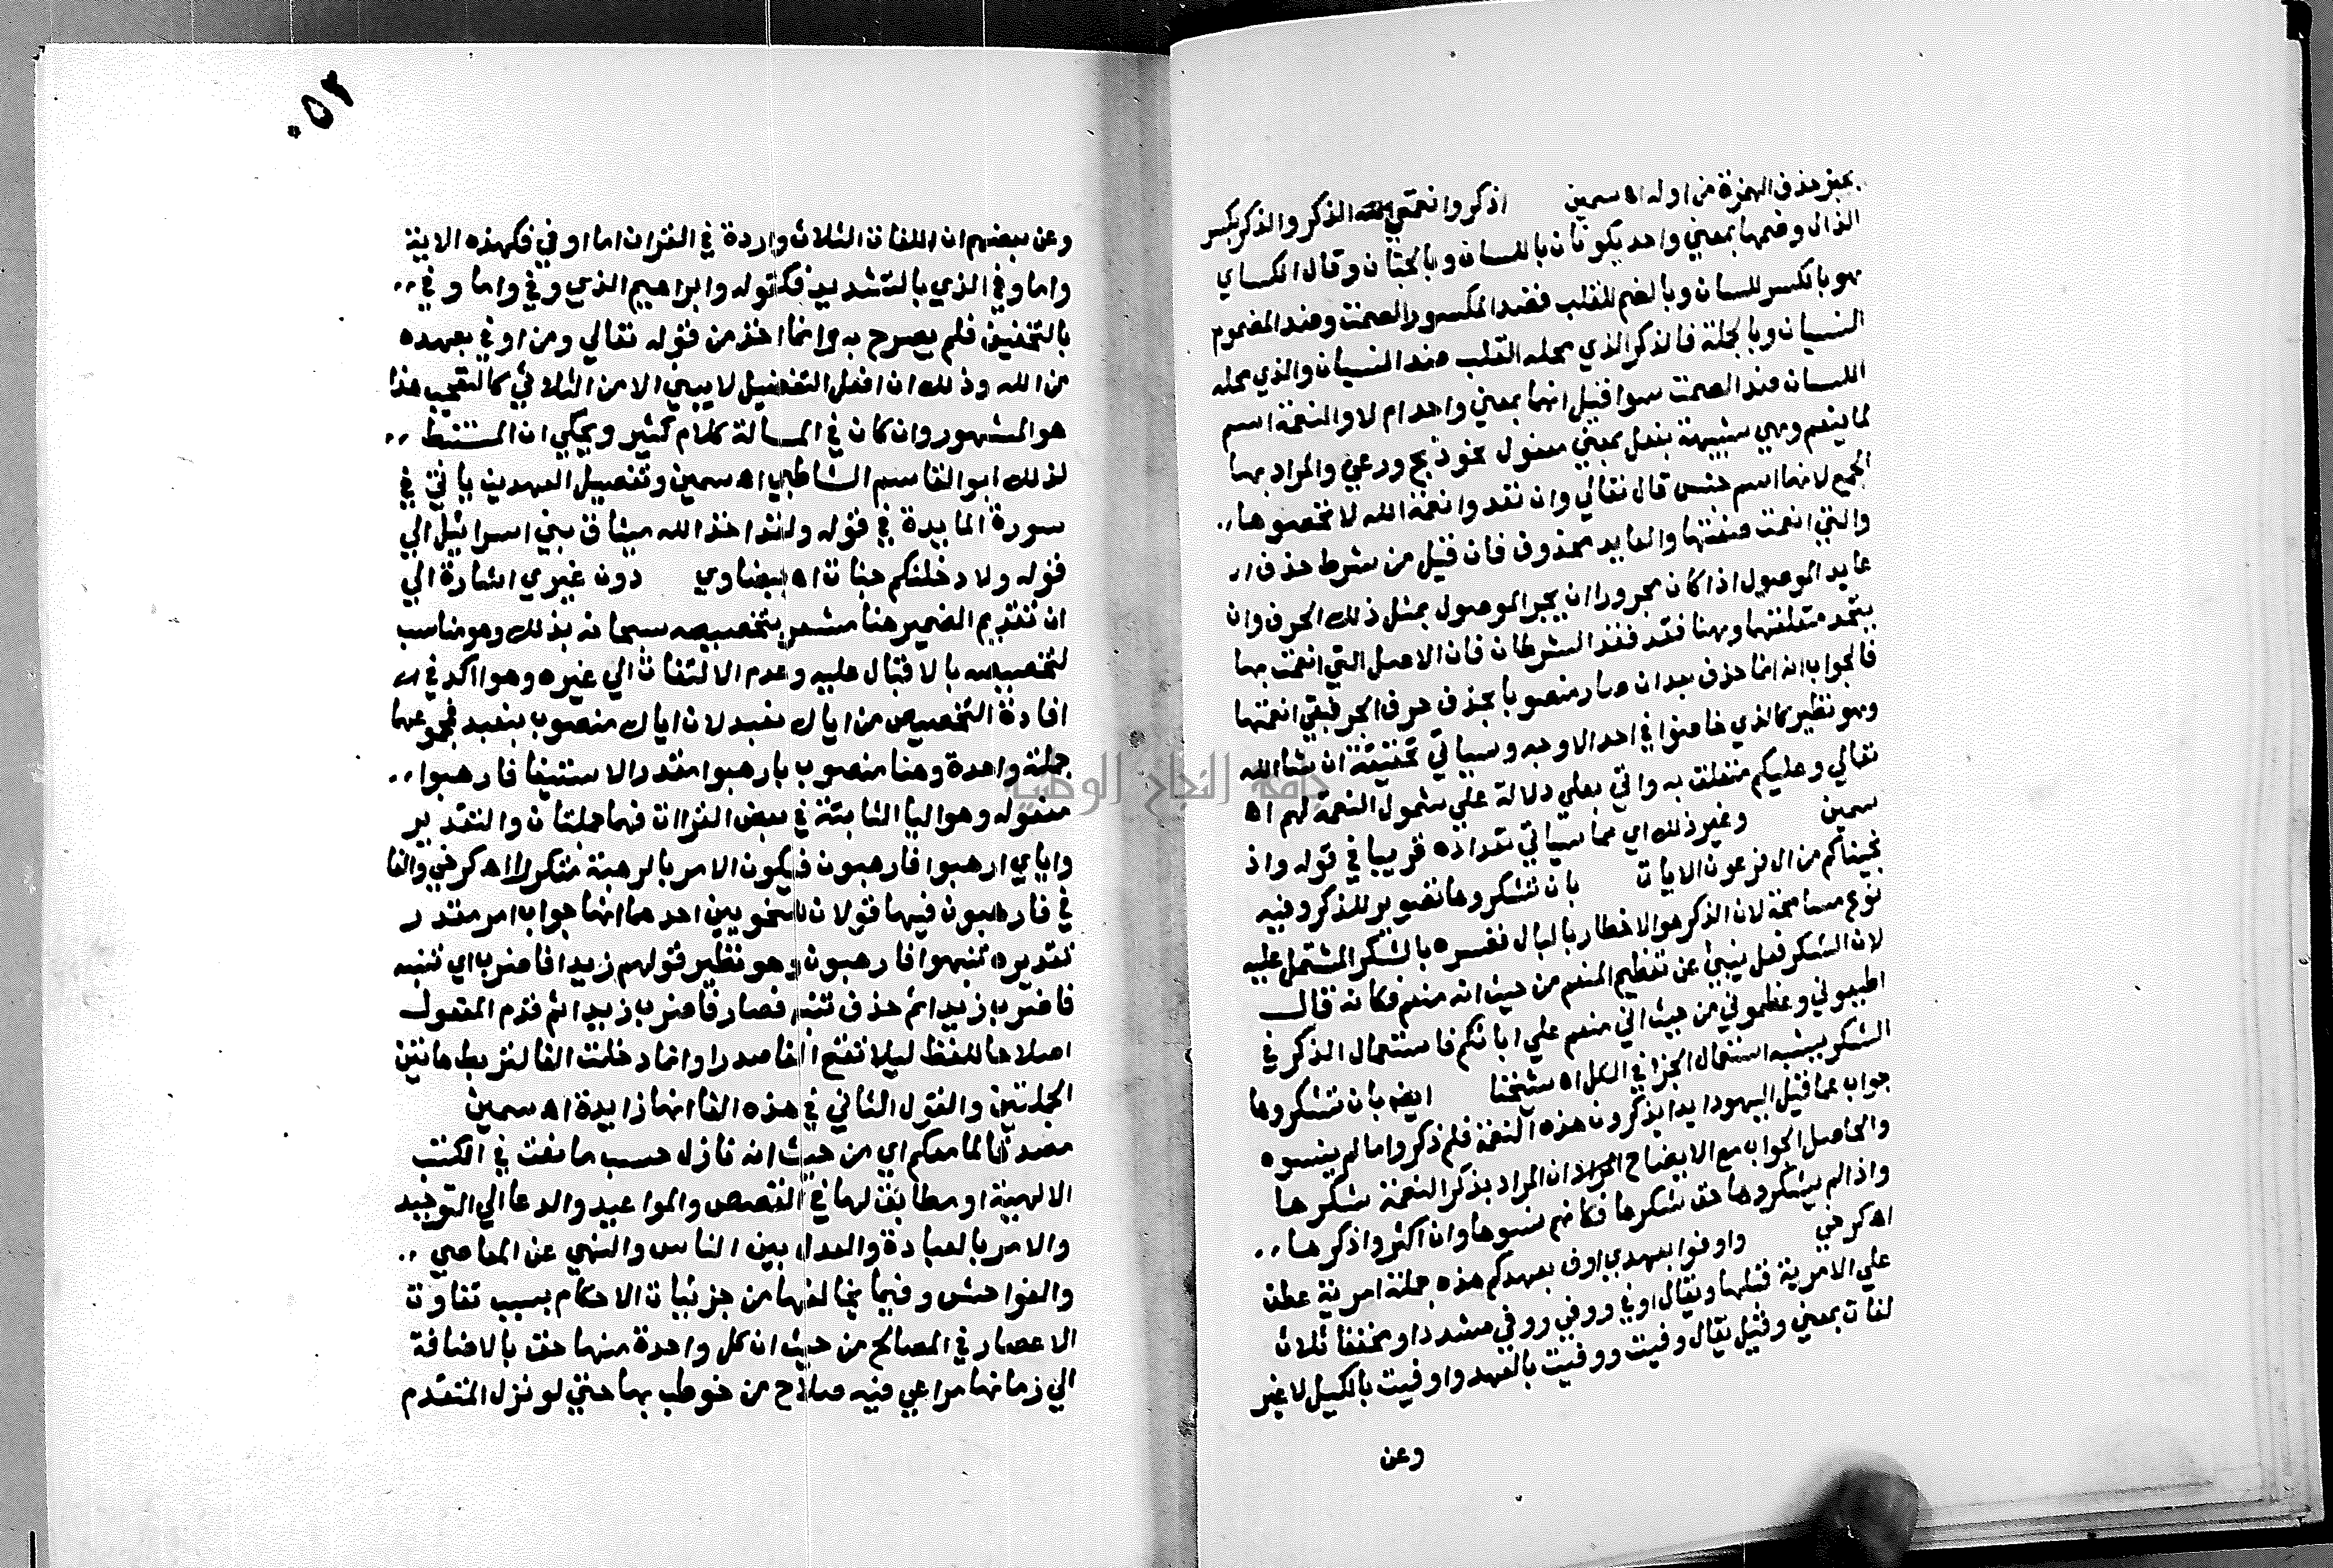 بغير حذف الهمزة من اوله اه سمين اذكروا نعمتي الذكر والذكر بكسر
الذال وضمها بمعني واحد يكونان باللسان وبالجنان وقال الكساي
هو بالكسر للسان وبالضم للقلب فضد المكسور الصمت وضد المضموم
النسيان وبالجملة فالذكر الذي محله القلب ضده النسيان والذي محله
اللسان ضده الصمت سوا قيل انهما بمعني واحد ام لا والنعمة اسم
لما ينعم به وهي شبيهة بفعل بمعني مفعول نحو ذبح ورعي والمراد بها
الجمع لانها اسم جنس قال تعالي وان تعدوا نعمة الله لا تحصوها
والتي انعمت صفتها والعايد محذوف فان قيل من شرط حذف
عايد الموصول اذا كان مجرورا ان يجر الموصول بمثل ذلك الحرف وان
يتحد متعلقهما وهنا فقد فقد الشرطان فان الاصل التي انعمت بها
فالجواب انه انما حذف بعد ان صار منصوبا بحذف حرف الجر فبقي انعمتها
وهو نظير كالذي خاضوا في احد الاوجه وسياتي تحقيقه ان شا الله
تعالي وعليكم متعلق به واتي بعلي دلالة علي شمول النعمة لهم اه
سمين وغير ذلك اي مما سياتي تعداده قريبا في قوله واذ
نجيناكم من ال فرعون الايات بان تشكروها تصوير للذكر وفيه
نوع مسامحة لان الذكر هو الاخطار بالبال ففسره بالشكر المشتمل عليه
لان الشكر فعل ينبئ عن تعظيم المنعم من حيث انه منعم فكانه قال
اطيعوني وعظموني من حيث اني منعم علي ابائكم فاستعمال الذكر في
الشكر يشبه استعمال الجزا في الكل اه شيخنا ايضا بان تشكروها
جواب عما قيل اليهود ابدا يذكرون هذه النعمة فلم ذكروا ما لم ينسوه
والحاصل الجواب مع الايضاح المراد ان المراد بذكر النعمة شكرها
واذا لم يشكروها حق شكرها فكانهم نسوها وان اكثروا ذكرها
اه كرخي واوفوا بعهدي اوف بعهدكم هذه جملة امرية عطف
علي الامرية قبلها ويقال اوفي ووفي ووفي مشددا ومخففا ثلاث
لغات بمعني وقيل يقال وفيت ووفيت بالعهد واوفيت بالكيل لا غير
وعن
٠٥٢
وعن بعضهم ان اللغات الثلاث واردة في القران اما اوفي فكهذه الاية
واما وفي الذي بالتشديد فكقوله وابراهيم الذي وفي واما وفي
بالتخفيف فلم يصرح به وانما اخذ من قوله تعالي ومن اوفي بعهده
من الله وذلك ان افعل التفضيل لا يبني الا من الثلاثي كالتعجب هذا
هو المشهور وان كان في المسالة كلام كثير ويحكي ان المستنبط
لذلك ابو القاسم الشاطبي اه سمين وتفصيل العهدين ياتي في
سورة المايدة في قوله ولقد اخذ الله ميثاق بني اسرائيل الي
قوله ولادخلنكم جنات اه بيضاوي دون غيري اشارة الي
ان تقديم الضمير هنا مشعر بتخصيصه سبحانه بذلك وهو مناسب
لتخصيصه بالاقبال عليه وعدم الالتفات الي غيره وهو اكد في
افادة التخصيص من اياك نعبد لان اياك منصوب بنعبد فمجموعهما
جملة واحدة وهنا منصوب بارهبوا مقدر الاستيفا فارهبوا
مفعوله وهو اليا الثابتة في بعض القراات فهما جملتان والتقدير
واياي ارهبوا فارهبون فيكون الامر بالرهبة متكررا اه كرخي والفا
في فارهبون فيها قولان للنحويين احدهما انها جواب امر مقدر
تقديره تنبهوا فارهبون وهو نظير قولهم زيدا فاضرب اي تنبه
فاضرب زيدا ثم حذف تنبه فصار فاضرب زيدا ثم قدم المفعول
اصلاحا للفظ ليلا تقع الفا صدرا وانما دخلت الفا لتربط هاتين
الجملتين والقول الثاني في هذه الفا انها زايدة اه سمين
مصدقا لما معكم اي من حيث انه نازل حسب ما نعت في الكتب
الالهية او مطابق لها في القصص والمواعيد والدعا الي التوحيد
والامر بالعبادة والعدل بين الناس والنهي عن المعاصي
والفواحش وفيما يخالفها من جزئيات الاحكام بسبب تفاوت
الاعصار في المصالح من حيث ان كل واحدة منها حق بالاضافة
الي زمانها مراعي فيه صلاح من خوطب بها حتي لو نزل المتقدم
جامعة النجاح الوطنية